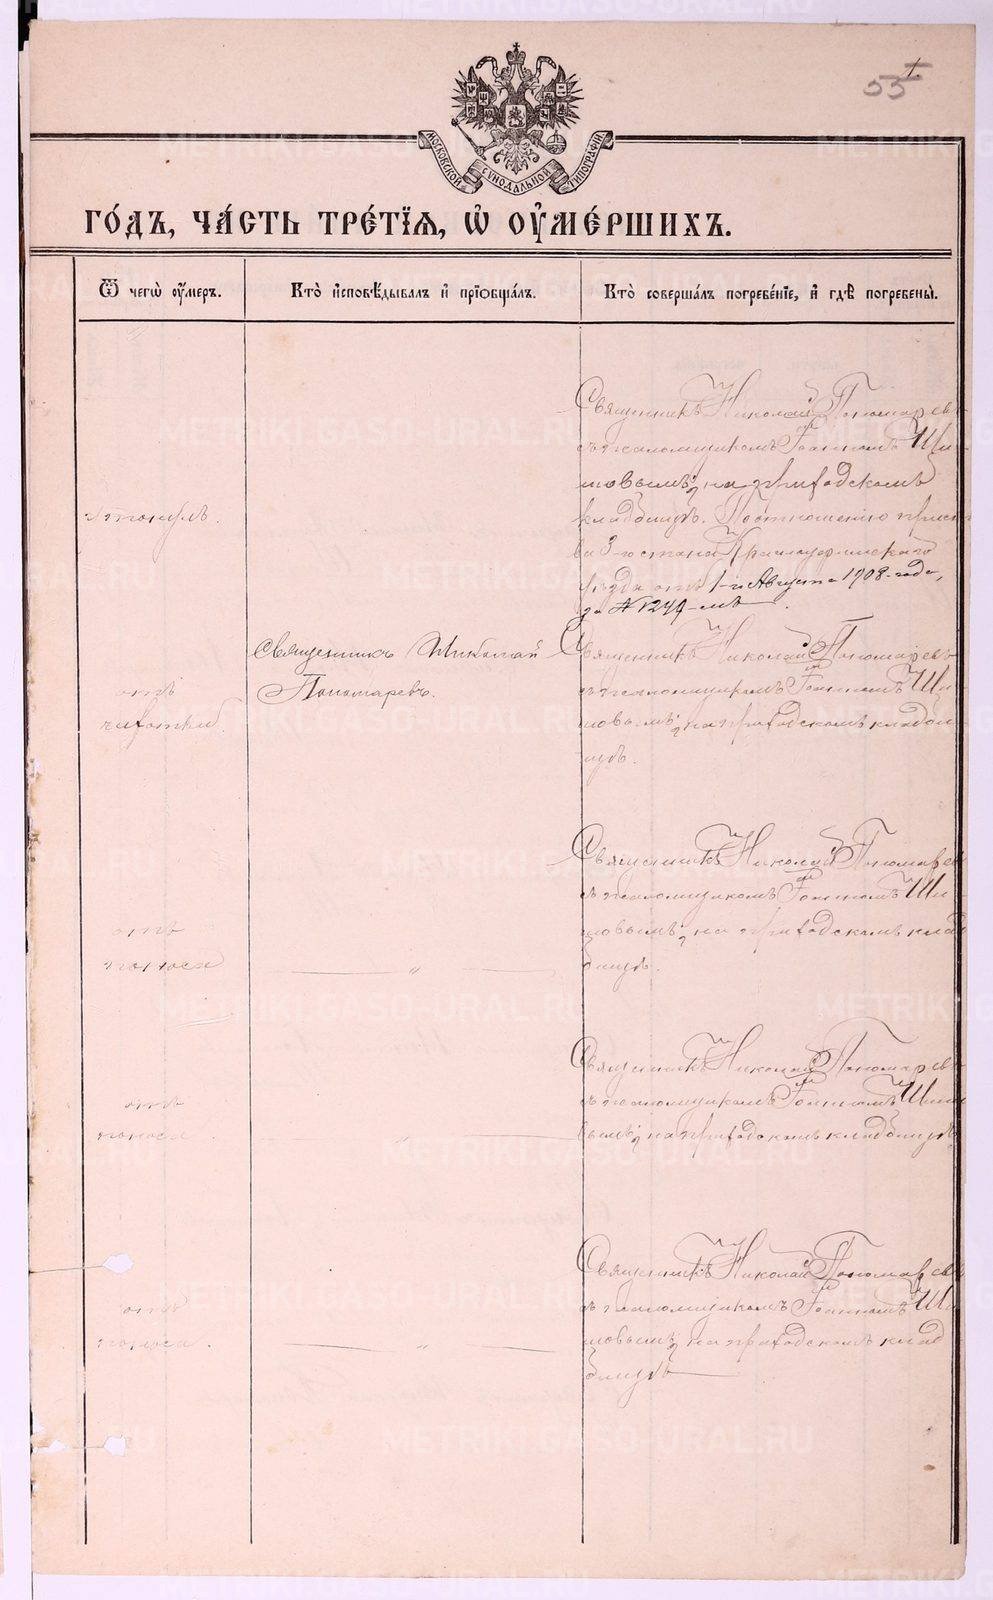 55
МОСКОВСКОЙ СѴНОДАЛЬНОЙ ТИПОГРАФІИ
ГО́ДЪ, ЧА́СТЬ ТРЕ́ТІѦ, Ѡ҆ ОУ҆МЕ́РШИХЪ.
Ѿ чегѡ̀ оу҆́меръ.
Кто̀ и҆сповѣ́дывалъ и҆ прїѻбща́лъ.
Кто̀ соверша́лъ погребе́нїе, и҆ гдѣ̀ погребены̀.
утонулъ.
Священникъ Николай Пономаревъ
съ псаломщикомъ Іоанномъ Ши-
шовымъ, на приходскомъ
кладбищѣ. По отношенію приста
ва 3-го стана Красноуфимскаго
уѣзда отъ 1-го Августа 1908 года,
за №
отъ
чахотки
Священникъ Николай
Пономаревъ.
Священникъ Николай Пономаревъ
съ псаломщикомъ Іоанномъ Ши-
шовымъ, на приходскомъ кладби
щѣ.
отъ
поноса
— " —
Священникъ Николай Пономаревъ
съ псаломщикомъ Іоанномъ Ши
шовымъ, на приходскомъ клад
бищѣ.
отъ
поноса
— " —
Священникъ Николай Пономаревъ
съ псаломщикомъ Іоанномъ Шишо
вымъ, на приходскомъ кладбищѣ
отъ
поноса.
— " —
Священникъ Николай Пономаревъ
съ псаломщикомъ Іоанномъ Ши
шовымъ, на приходскомъ клад
бищѣ
METRIKI.GASO-URAL.RU